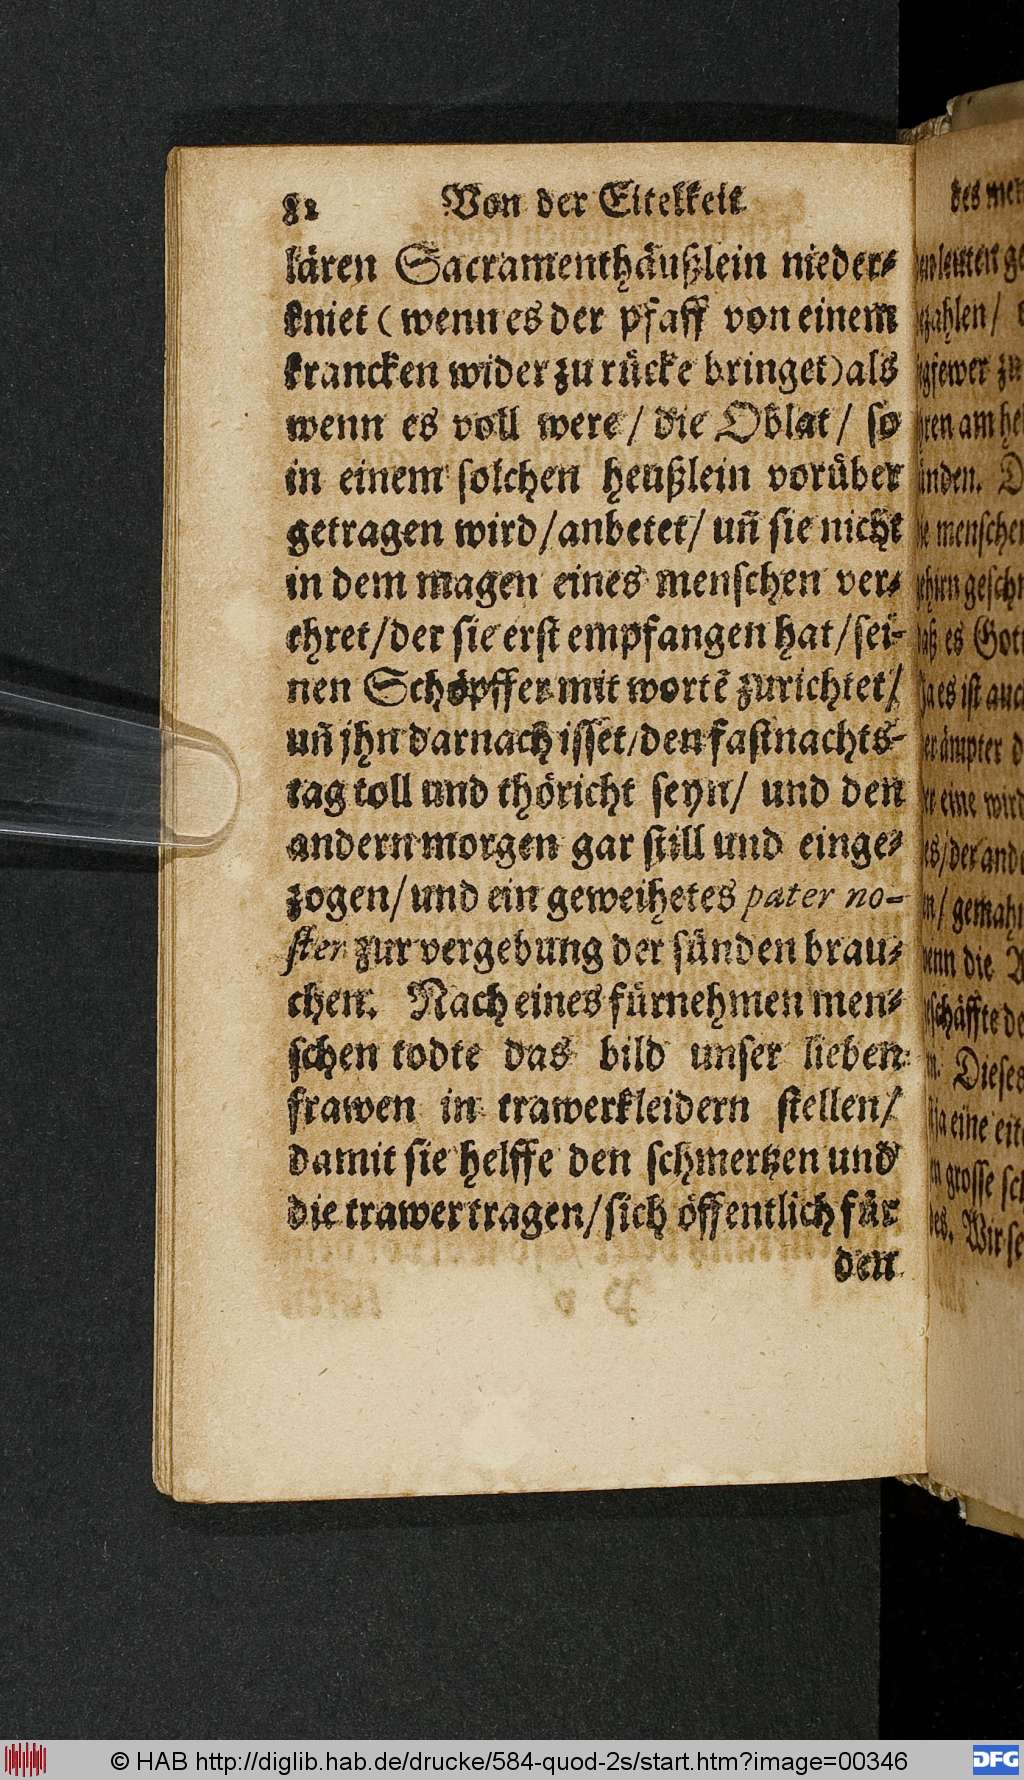 82 Von der Eitelkeit
lären Sacramenthäußlein nieder⸗
kniet (wenn es der pfaff von einem
krancken wider zu rücke bringet) als
wenn es voll were / die Oblat / so
in einem solchen heußlein vorüber
getragen wird / anbetet / un̄ sie nicht
in dem magen eines menschen ver⸗
ehret / der sie erst empfangen hat / sei⸗
nen Schöpffer mit wortē zurichtet /
un̄ jhn darnach isset / den fastnachts⸗
tag toll und thöricht seyn / und den
andern morgen gar still und einge⸗
zogen / und ein geweihetes pater no-
ster zur vergebung der sünden brau⸗
chen. Nach eines fürnehmen men⸗
schen todte das bild unser lieben
frawen in trawerkleidern stellen /
damit sie helffe den schmertzen und
die trawer tragen / sich öffentlich für
den
des
zahlen /
gfewer zu
ren am
inden.
menschen
daß es
Ja es ist auch
ämpter
eine wird
es / der
/ gemahn
denn die
schäffte
Dieses
ja eine
grosse
des. Wir
© HAB http://diglib.hab.de/drucke/584-quod-2s/start.htm?image=00346
DFG